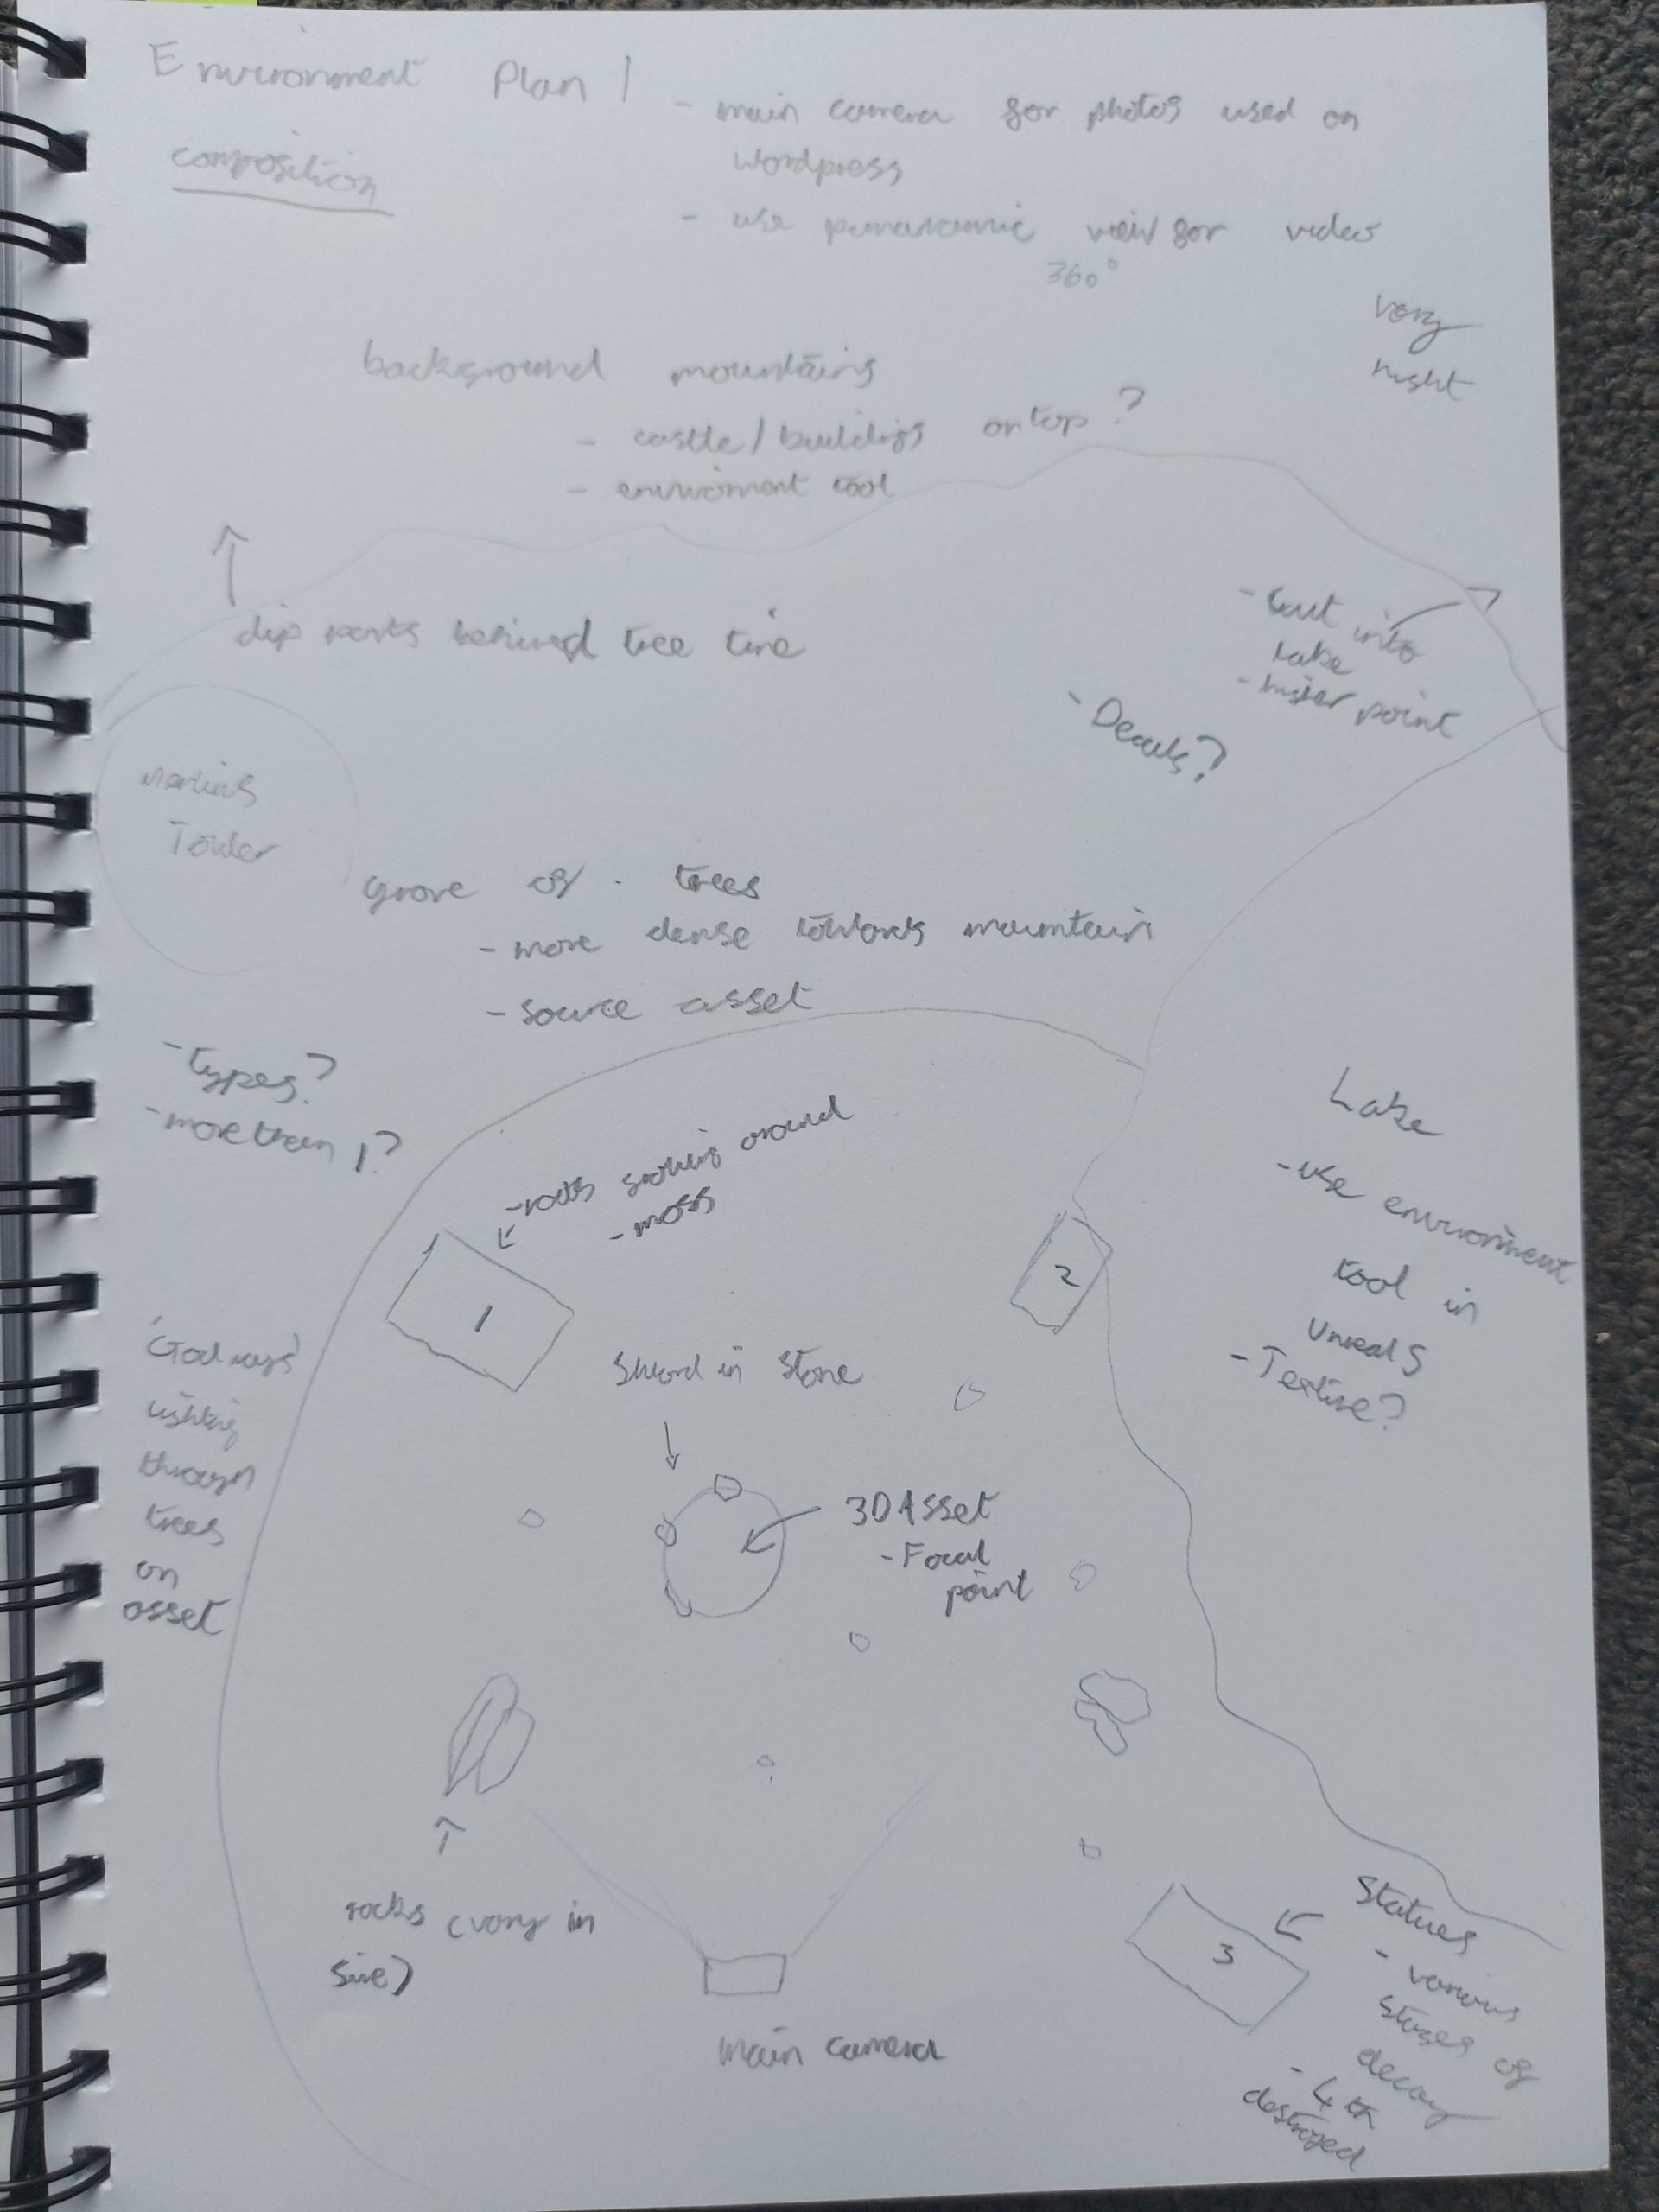 Environment Plan 1
composition
- main camera for photos used on
wordpress
- use panaramic view for video
360°
vary
hight
background mountains
- castle/buildings ontop ?
- enviroment tool
dip parts behind tree line
- Cut into
lake
- higher point
- Decals?
Merlins
Tower
grove of trees
- more dense towards mountain
- source asset
- types?
- more than 1?
- roots growing around
- moss
1
2
Lake
- use enviroment
tool in
Unreal 5
- Texture?
'God rays'
lighting
through
trees
on
asset
Sword in Stone
3D Asset
- Focal
point
rocks (vary in
size)
Main camera
3
Statues
- various
stages of
decay
- 4th
destroyed